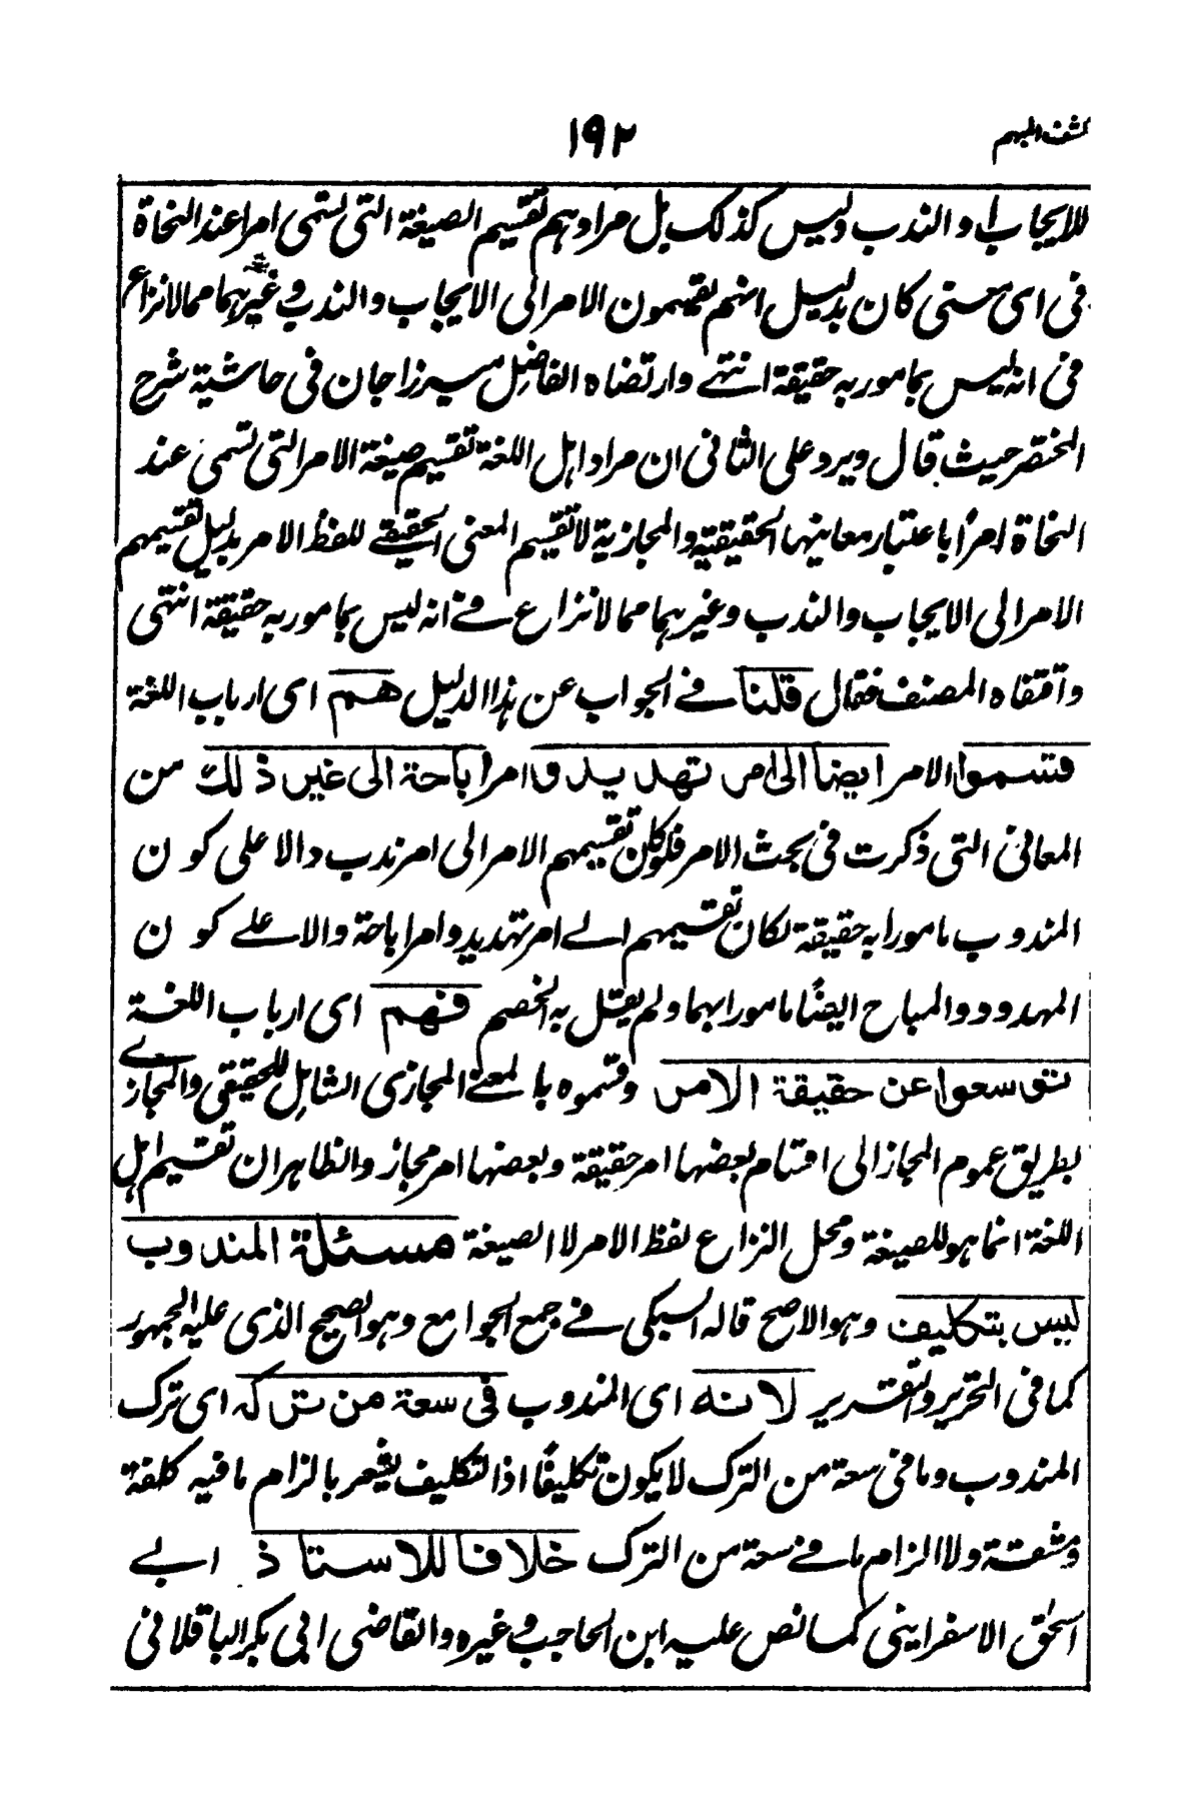 كشف المبهم
١٩٢
للايجاب او الندب وليس كذلك بل مرادهم تقسيم الصيغة التي تسمى امرا عند النحاة
في اى معنى كان بدليل انهم يقسمون الامر الى الايجاب والندب وغيرهما مما لا نزاع
في انه ليس بمامور به حقيقة انتهے وارتضاه الفاضل ميرزا جان في حاشية شرح
المختصر حيث قال ويرد على الثاني ان مراد اهل اللغة تقسيم صيغة الامر التي تسمى عند
النحاة امرًا باعتبار معانيها الحقيقية والمجازية لا تقسيم المعنى الحقيقے للفظ الامر بدليل تقسيمهم
الامر الى الايجاب والندب وغيرهما مما لا نزاع فے انه ليس بمامور به حقيقة انتهى
واقتفاه المصنف فقال قلنا فے الجواب عن هذا الدليل هم اى ارباب اللغة
قسموا الامر ايضا الى امر تهديد وامر اباحة الى غير ذلك من
المعاني التي ذكرت في بحث الامر فلو كان تقسيمهم الامر الى امر ندب دالا على كون
المندوب مامورا به حقيقة لكان تقسيمهم الے امر تهديد وامر اباحة دالا علے كون
المهدود والمباح ايضًا مامورا بهما ولم يقل به الخصم فهم اى ارباب اللغة
توسعوا عن حقيقة الامر وقسموه بالمعنے المجازى الشامل للحقيقي والمجازے
بطريق عموم المجاز الى اقسام بعضها امر حقيقة وبعضها امر مجاز والظاهر ان تقسيم اهل
اللغة انما هو للصيغة ومحل النزاع لفظ الامر لا الصيغة مسئلة المندوب
ليس بتكليف وهو الاصح قاله السبكى فے جمع الجوامع وهو الصحيح الذى عليه الجمهور
كما في التحرير والتقرير لانه اى المندوب فى سعة من تركه اى ترك
المندوب وما في سعة من الترك لا يكون تكليفًا اذ التكليف يشعر بالزام ما فيه كلفة
ومشقة ولا الزام ما فے سعة من الترك خلافا للاستاذ ابے
اسحٰق الاسفرايني كما نص عليه ابن الحاجب وغيره والقاضى ابى بكر الباقلاني